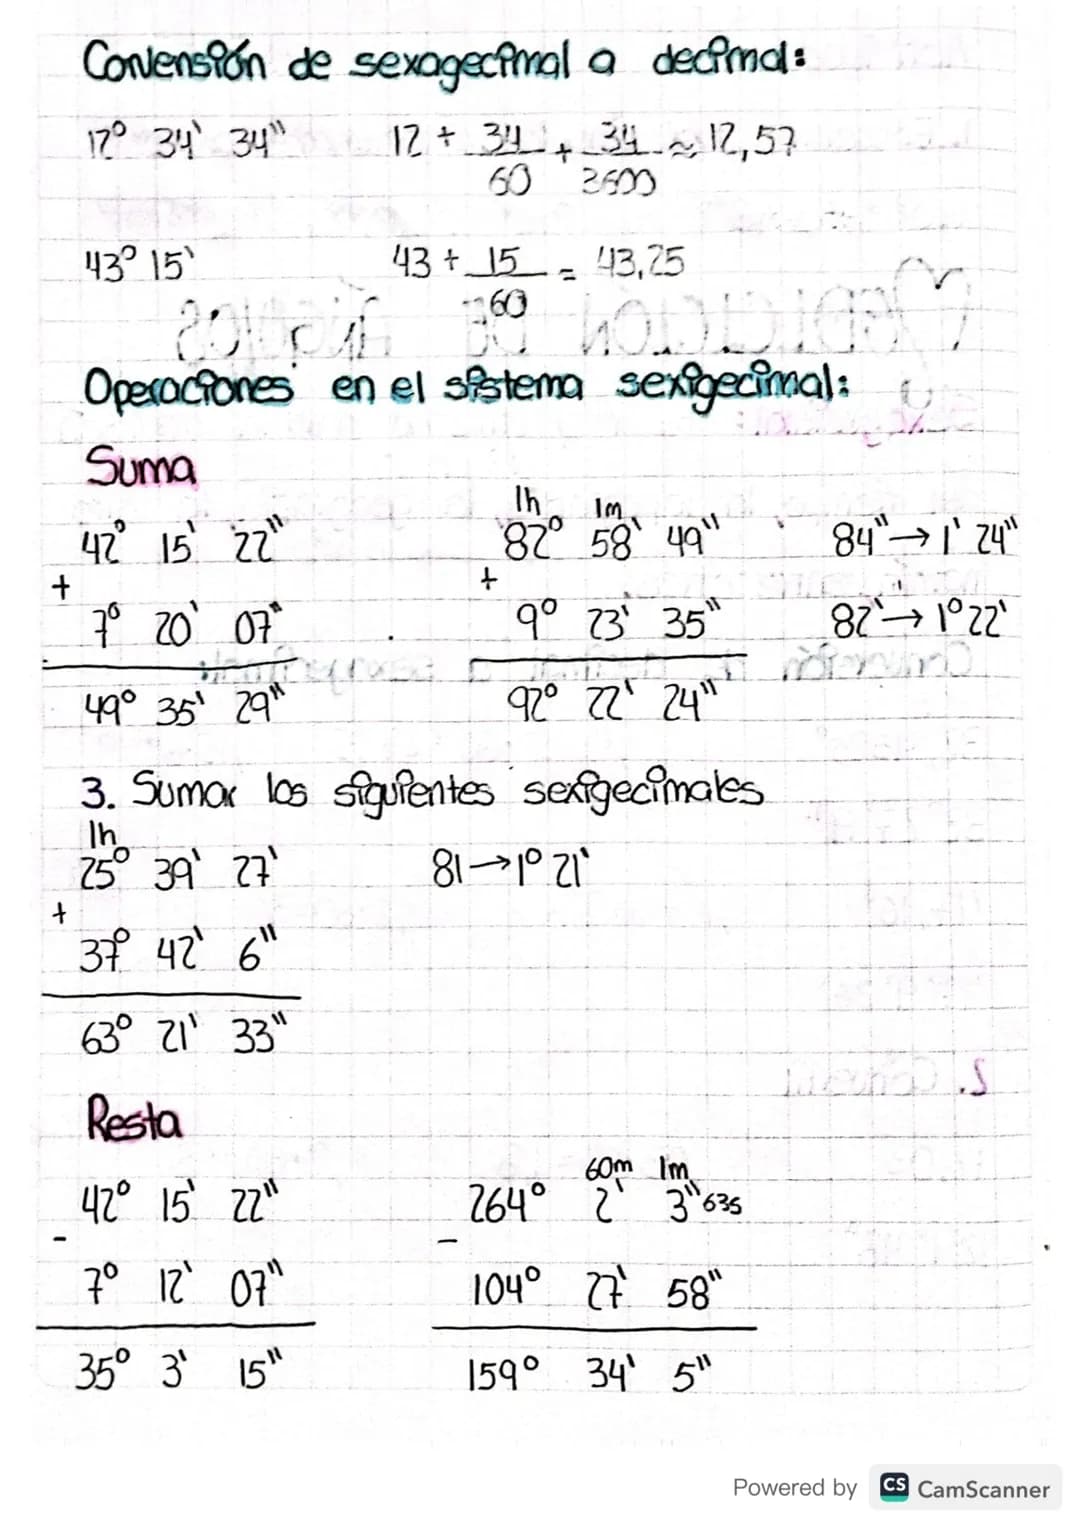 Convensión de sexagecimal a decimal:
12° 34' 34" 12 + 34/60 + 34/3600 ≈ 12,57
43° 15' 43 + 15/60 = 43,25
MEDICICIÓN DE ÁNGULOS
Operaciones en el sistema sexigecimal:
Suma
1h 1m
42° 15' 22" 82° 58' 49" 84" → 1' 24"
+ +
7° 20' 07" 9° 23' 35" 82' → 1° 22'
49° 35' 29" 92° 22' 24"
3. Sumar los siguientes sexigecimales
1h
25° 39' 27' 81 → 1° 21'
+
37° 42' 6"
63° 21' 33"
Resta
60m 1m
42° 15' 22" 264° 2' 3" 63s
- -
7° 12' 07" 104° 27' 58"
35° 3' 15" 159° 34' 5"
Powered by CS CamScanner